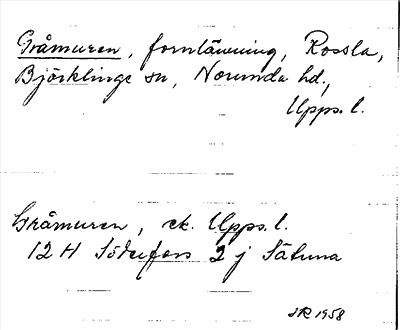 Gråmuren, fornlämning, Rossla,
Björklinge sn, Norunda hd,
Upps. l.
Gråmuren, ek. Upps. l.
12 H Söderfors 2 j Sätuna
1958